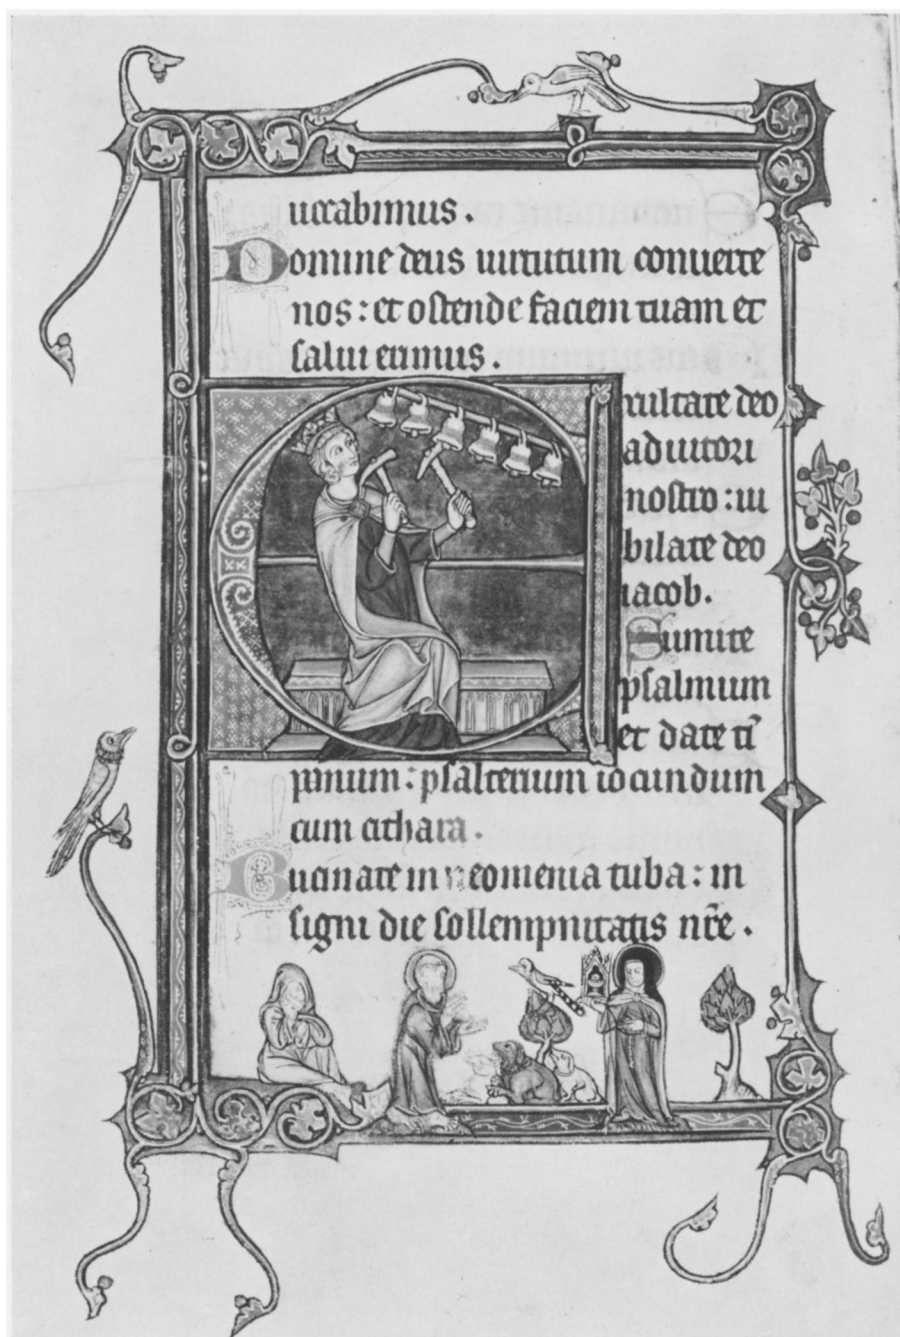 uocabimus .
Domine deus uirtutum conuerte
nos : et ostende faciem tuam et
salui erimus .
Exultate deo
adiutori
nostro : iu
bilate deo
iacob .
Sumite
psalmum
et date ti̅
panum : psalterium iocundum
cum cithara .
Bucinate in neomenia tuba : in
signi die sollempnitatis nr̅e .